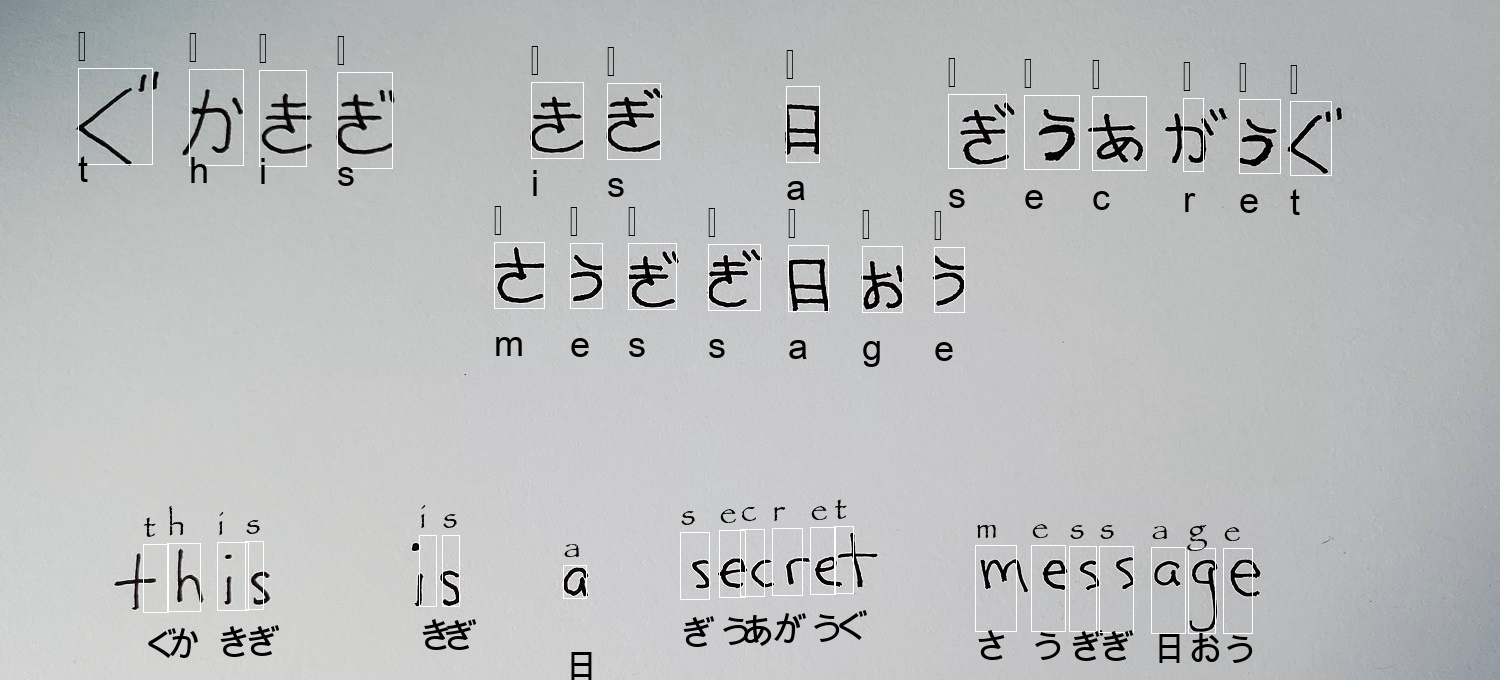 ぐかきぎ きぎ 日 ぎうあがうぐ
t h i s i s a s e c r e t
さうぎぎ日おう
m e s s a g e
t h i s i s a s e c r e t m e s s a g e
this is a secret message
ぐかきぎ きぎ 日 ぎうあがうぐ さうぎぎ日おう